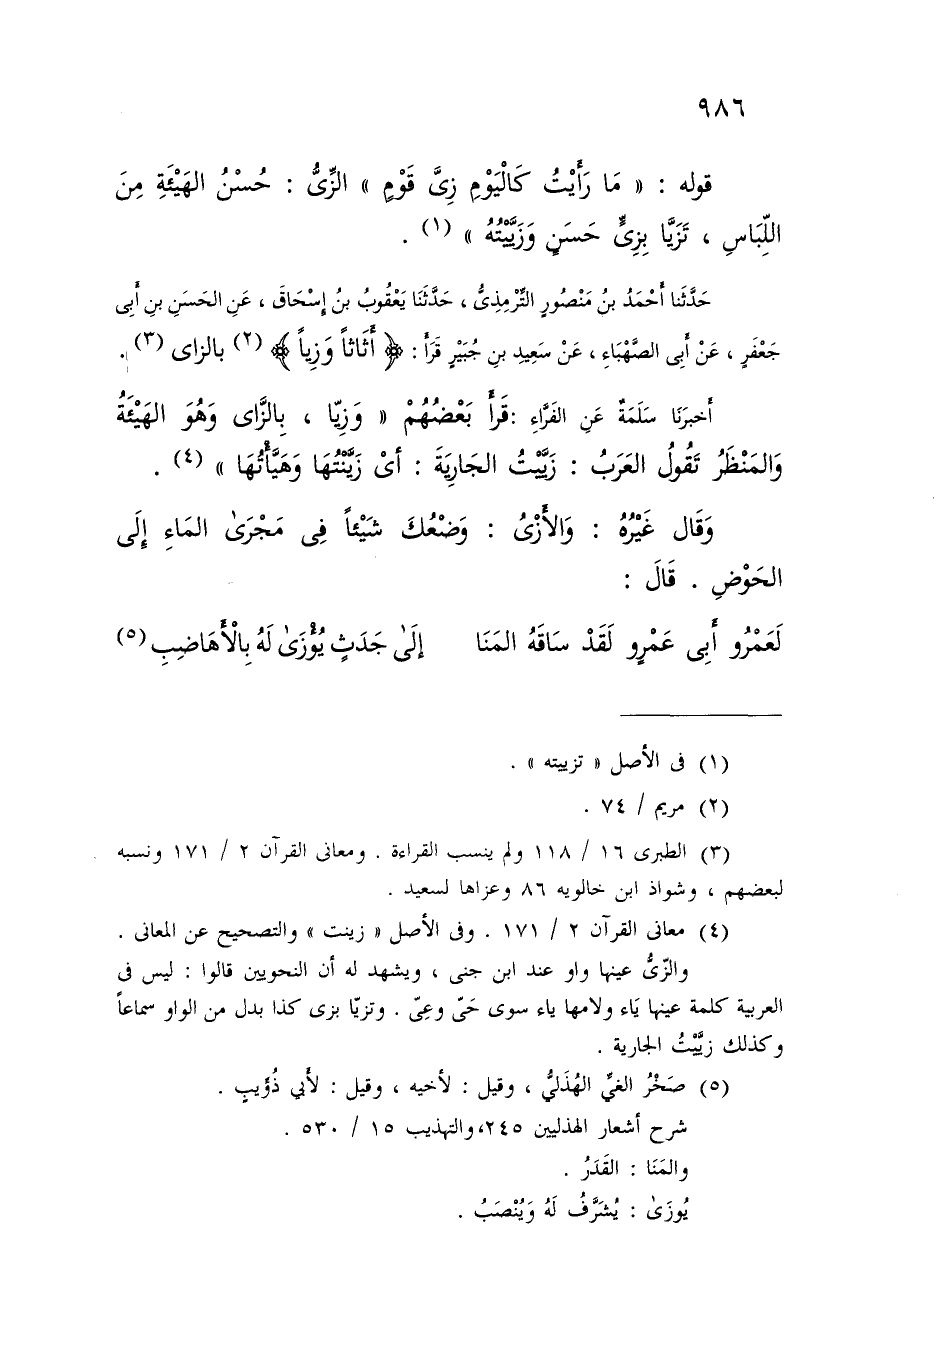 ٩٨٦
قوله : « مَا رَأَيْتُ كَالْيَوْمِ زِىَّ قَوْمٍ » الزِّىُّ : حُسْنُ الهَيْئَةِ مِنَ
اللِّبَاسِ ، تَزَيَّا بِزِىٍّ حَسَنٍ وَزَيَّيْتُهُ » (١) .
حَدَّثَنا أَحْمَدُ بنُ مَنْصُورٍ التِّرْمِذِىُّ ، حَدَّثَنَا يَعْقُوبُ بنُ إِسْحَاقَ ، عَنِ الحَسَنِ بنِ أَبِى
جَعْفَرٍ ، عَنْ أَبِى الصَّهْبَاءِ ، عَنْ سَعِيدِ بنِ جُبَيْرٍ قَرَأَ : ﴿ أَثَاثاً وَزِياً ﴾ (٢) بالزاى (٣) .
أَخبرَنَا سَلَمَةٌ عَنِ الفَرَّاءِ :قَرأَ بَعْضُهُمْ « وَزِيّا ، بِالزَّاى وَهُوَ الهَيْئَةُ
وَالمَنْظَرُ تَقُولُ العَرَبُ : زَيَّيْتُ الجَارِيَةَ : أىْ زَيَّنْتُهَا وَهَيَّأْتُهَا » (٤) .
وَقَال غَيْرُهُ : وَالأَزْىُ : وَضْعُكَ شَيْئاً فِى مَجْرَىٰ المَاءِ إِلَى
الحَوْضِ . قَالَ :
لَعَمْرُو أَبِى عَمْرٍو لَقَدْ سَاقَهُ المَنَا إِلَىٰ جَدَثٍ يُؤْزَىٰ لَهُ بِالْأَهَاضِبِ (٥)
(١) فى الأصل « تزييته » .
(٢) مريم / ٧٤ .
(٣) الطبرى ١٦ / ١١٨ ولم ينسب القراءة . ومعانى القرآن ٢ / ١٧١ ونسبه
لبعضهم ، وشواذ ابن خالويه ٨٦ وعزاها لسعيد .
(٤) معانى القرآن ٢ / ١٧١ . وفى الأصل « زينت » والتصحيح عن المعانى .
والزِّىُّ عينها واو عند ابن جنى ، ويشهد له أن النحويين قالوا : ليس فى
العربية كلمة عينها يَاء ولامها ياء سوى حَىّ وعِىّ . وتزيّا بزى كذا بدل من الواو سماعاً
وكذلك زيَّيْتُ الجارية .
(٥) صَخْرُ الغىِّ الهُذَلىُّ ، وقيل : لأخيه ، وقيل : لأبي ذُؤَيبٍ .
شرح أشعار الهذليين ٢٤٥، والتهذيب ١٥ / ٥٣٠ .
والمَنَا : القَدَرُ .
يُوزَىٰ : يُشَرَّفُ لَهُ وَيُنْصَبُ .